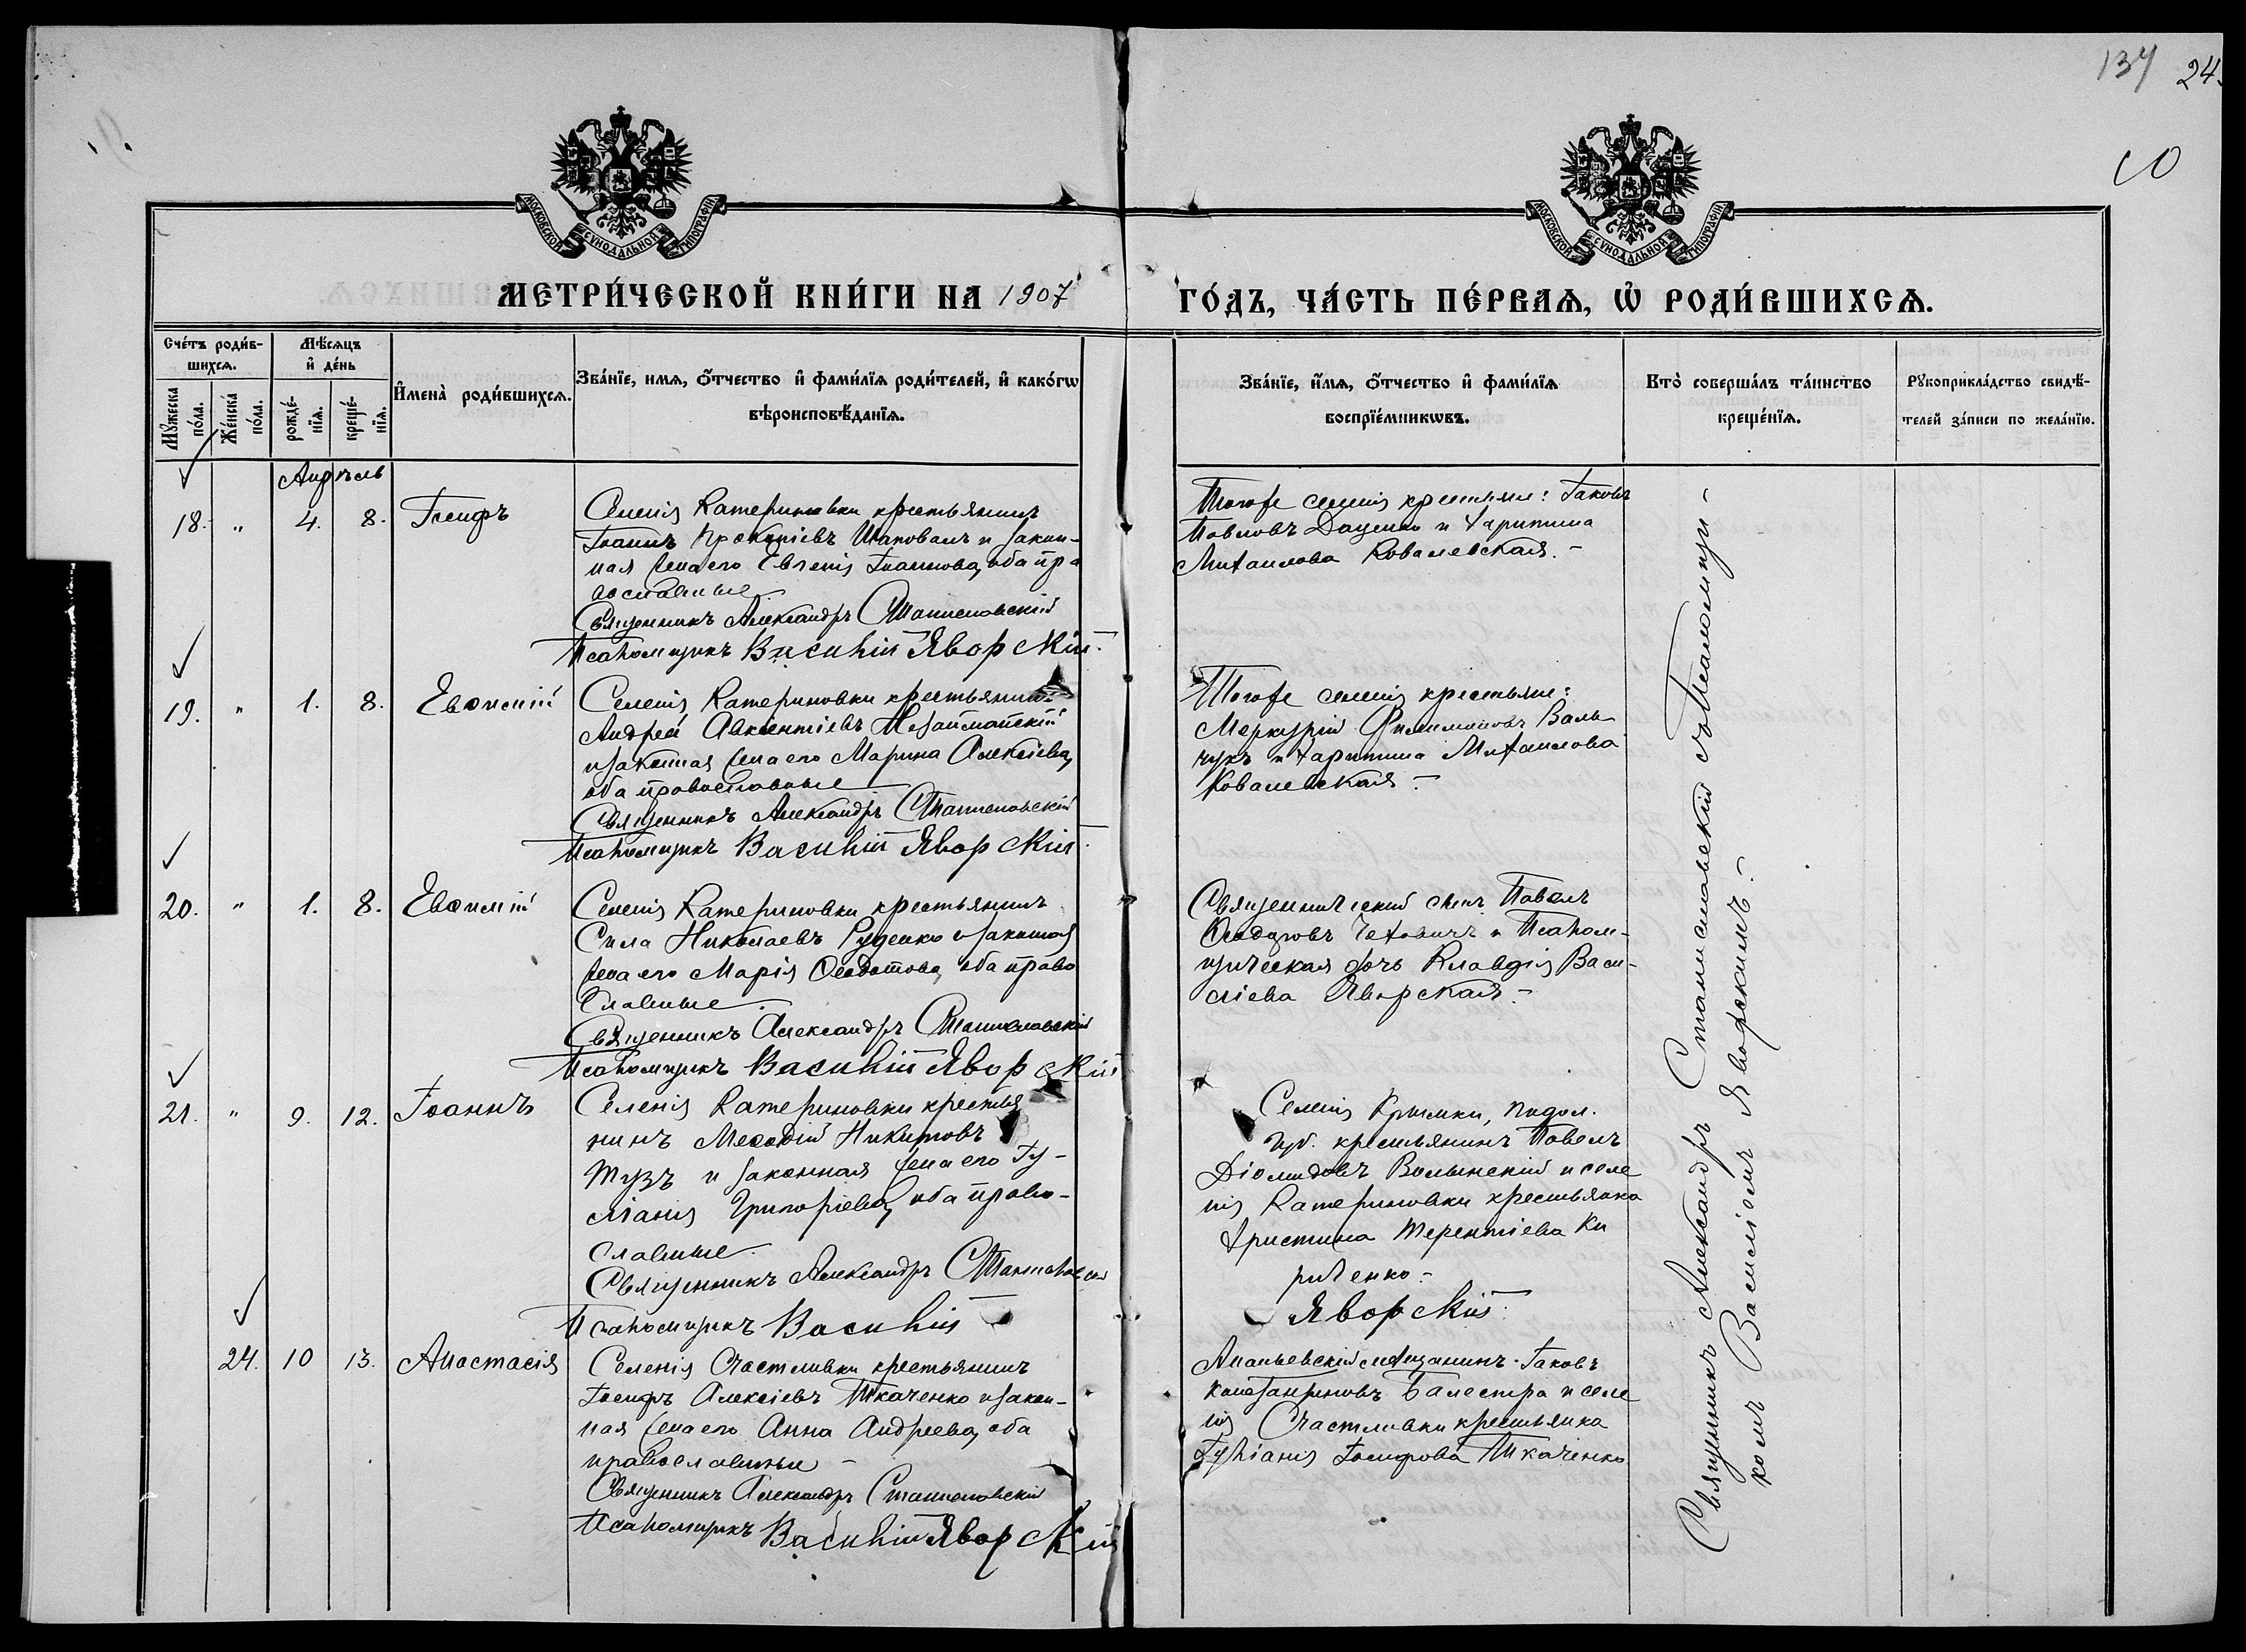 134 24.
10
МОСКОВСКОЙ СѴНОДАЛЬНОЙ ТИПОГРАФІИ
МОСКОВСКОЙ СѴНОДАЛЬНОЙ ТИПОГРАФІИ
МЕТРИ́ЧЕСКОЙ КНИ́ГИ НА 1907 ГО́ДЪ, ЧА́СТЬ ПЕ́РВАѦ, Ѽ РОДИ́ВШИХСѦ.
Сче́тъ роди́в-
шихсѧ.
Мꙋ́жеска по́ла.
Же́нска по́ла.
Мѣ́сѧцъ
и҆ де́нь
рожде́-
нїѧ.
креще́-
нїѧ.
И҆мена̀ роди́вшихсѧ.
Зва́нїе, имѧ, ѻ҆́тчество и҆ фами́лїѧ роди́телей, и҆ како́гѡ
вѣроисповѣ́данїѧ.
Зва́нїе, и҆́мѧ, ѻ҆́тчество и҆ фами́лїѧ
воспрїе́мникѡвъ.
Кто̀ соверша́лъ та́инство
креще́нїѧ.
Рꙋкоприкла́дство свидѣ́-
телей за́писи по жела́нїю.
Апрѣль
18. " 4. 8. Іосифъ
Селенія Катериновки крестьянинъ
Іоаннъ Прокопіевъ Шаповалъ и закон-
ная жена его Евгенія Іоаннова, оба пра
вославные
Священникъ Александръ Станиславскій
Псаломщикъ Василій Яворскій.
Тогоже селенія крестьяне: Іаковъ
Павловъ Даценко и Харитина
Михаилова Ковалевская.-
19. " 1. 8. Евѳимій
Селенія Катериновки крестьянинъ
Андрей Авксентіевъ Незайманскій
и законная жена его Марина Алексіева,
оба православные
Священникъ Александръ Станиславскій
Псаломщикъ Василій Яворскій
Тогоже селенія крестьяне:
Меркурій Филимоновъ Валь-
чукъ и Харитина Михаилова
Ковалевская.-
20. " 1. 8. Евѳимій
Селенія Катериновки крестьянинъ
Сила Николаевъ Руденко и законная
жена его Марія Ѳеодотова, оба право
славные
Священникъ Александръ Станиславскій
Псаломщикъ Василій Яворскій
Священническій сынъ Павелъ
Ѳеодоровъ Чеховичъ и Псалом-
щическая дочь Клавдія Васи-
лиева Яворская.-
21. " 9. 12. Іоаннъ
Селенія Катериновки крестья
нинъ Меѳодій Никитовъ
Тузъ и законная жена его Іу-
ліанія Григоріева, оба право-
славные.
Священникъ Александръ Станиславскій
Псаломщикъ Василій Яворскій
Селенія Крымки, подол.
губ. крестьянинъ Павелъ
Діомидовъ Волынскій и селе
нія Катериновки крестьянка
Христина Терентіева Ки
риченко.-
24. 10 13. Анастасія
Селенія Счастливки крестьянинъ
Іосифъ Алексіевъ Ткаченко и закон-
ная жена его Анна Андреева, оба
православные -
Священникъ Александръ Станиславскій
Псаломщикъ Василій Яворскій
Ананьевскій мѣщанинъ Іаковъ
Балестра и селе
нія Счастливки крестьянка
Іуліанія Іосифова Ткаченко
Священникъ Александръ Станиславскій съ Псаломщи-
комъ Василіемъ Яворскимъ.-